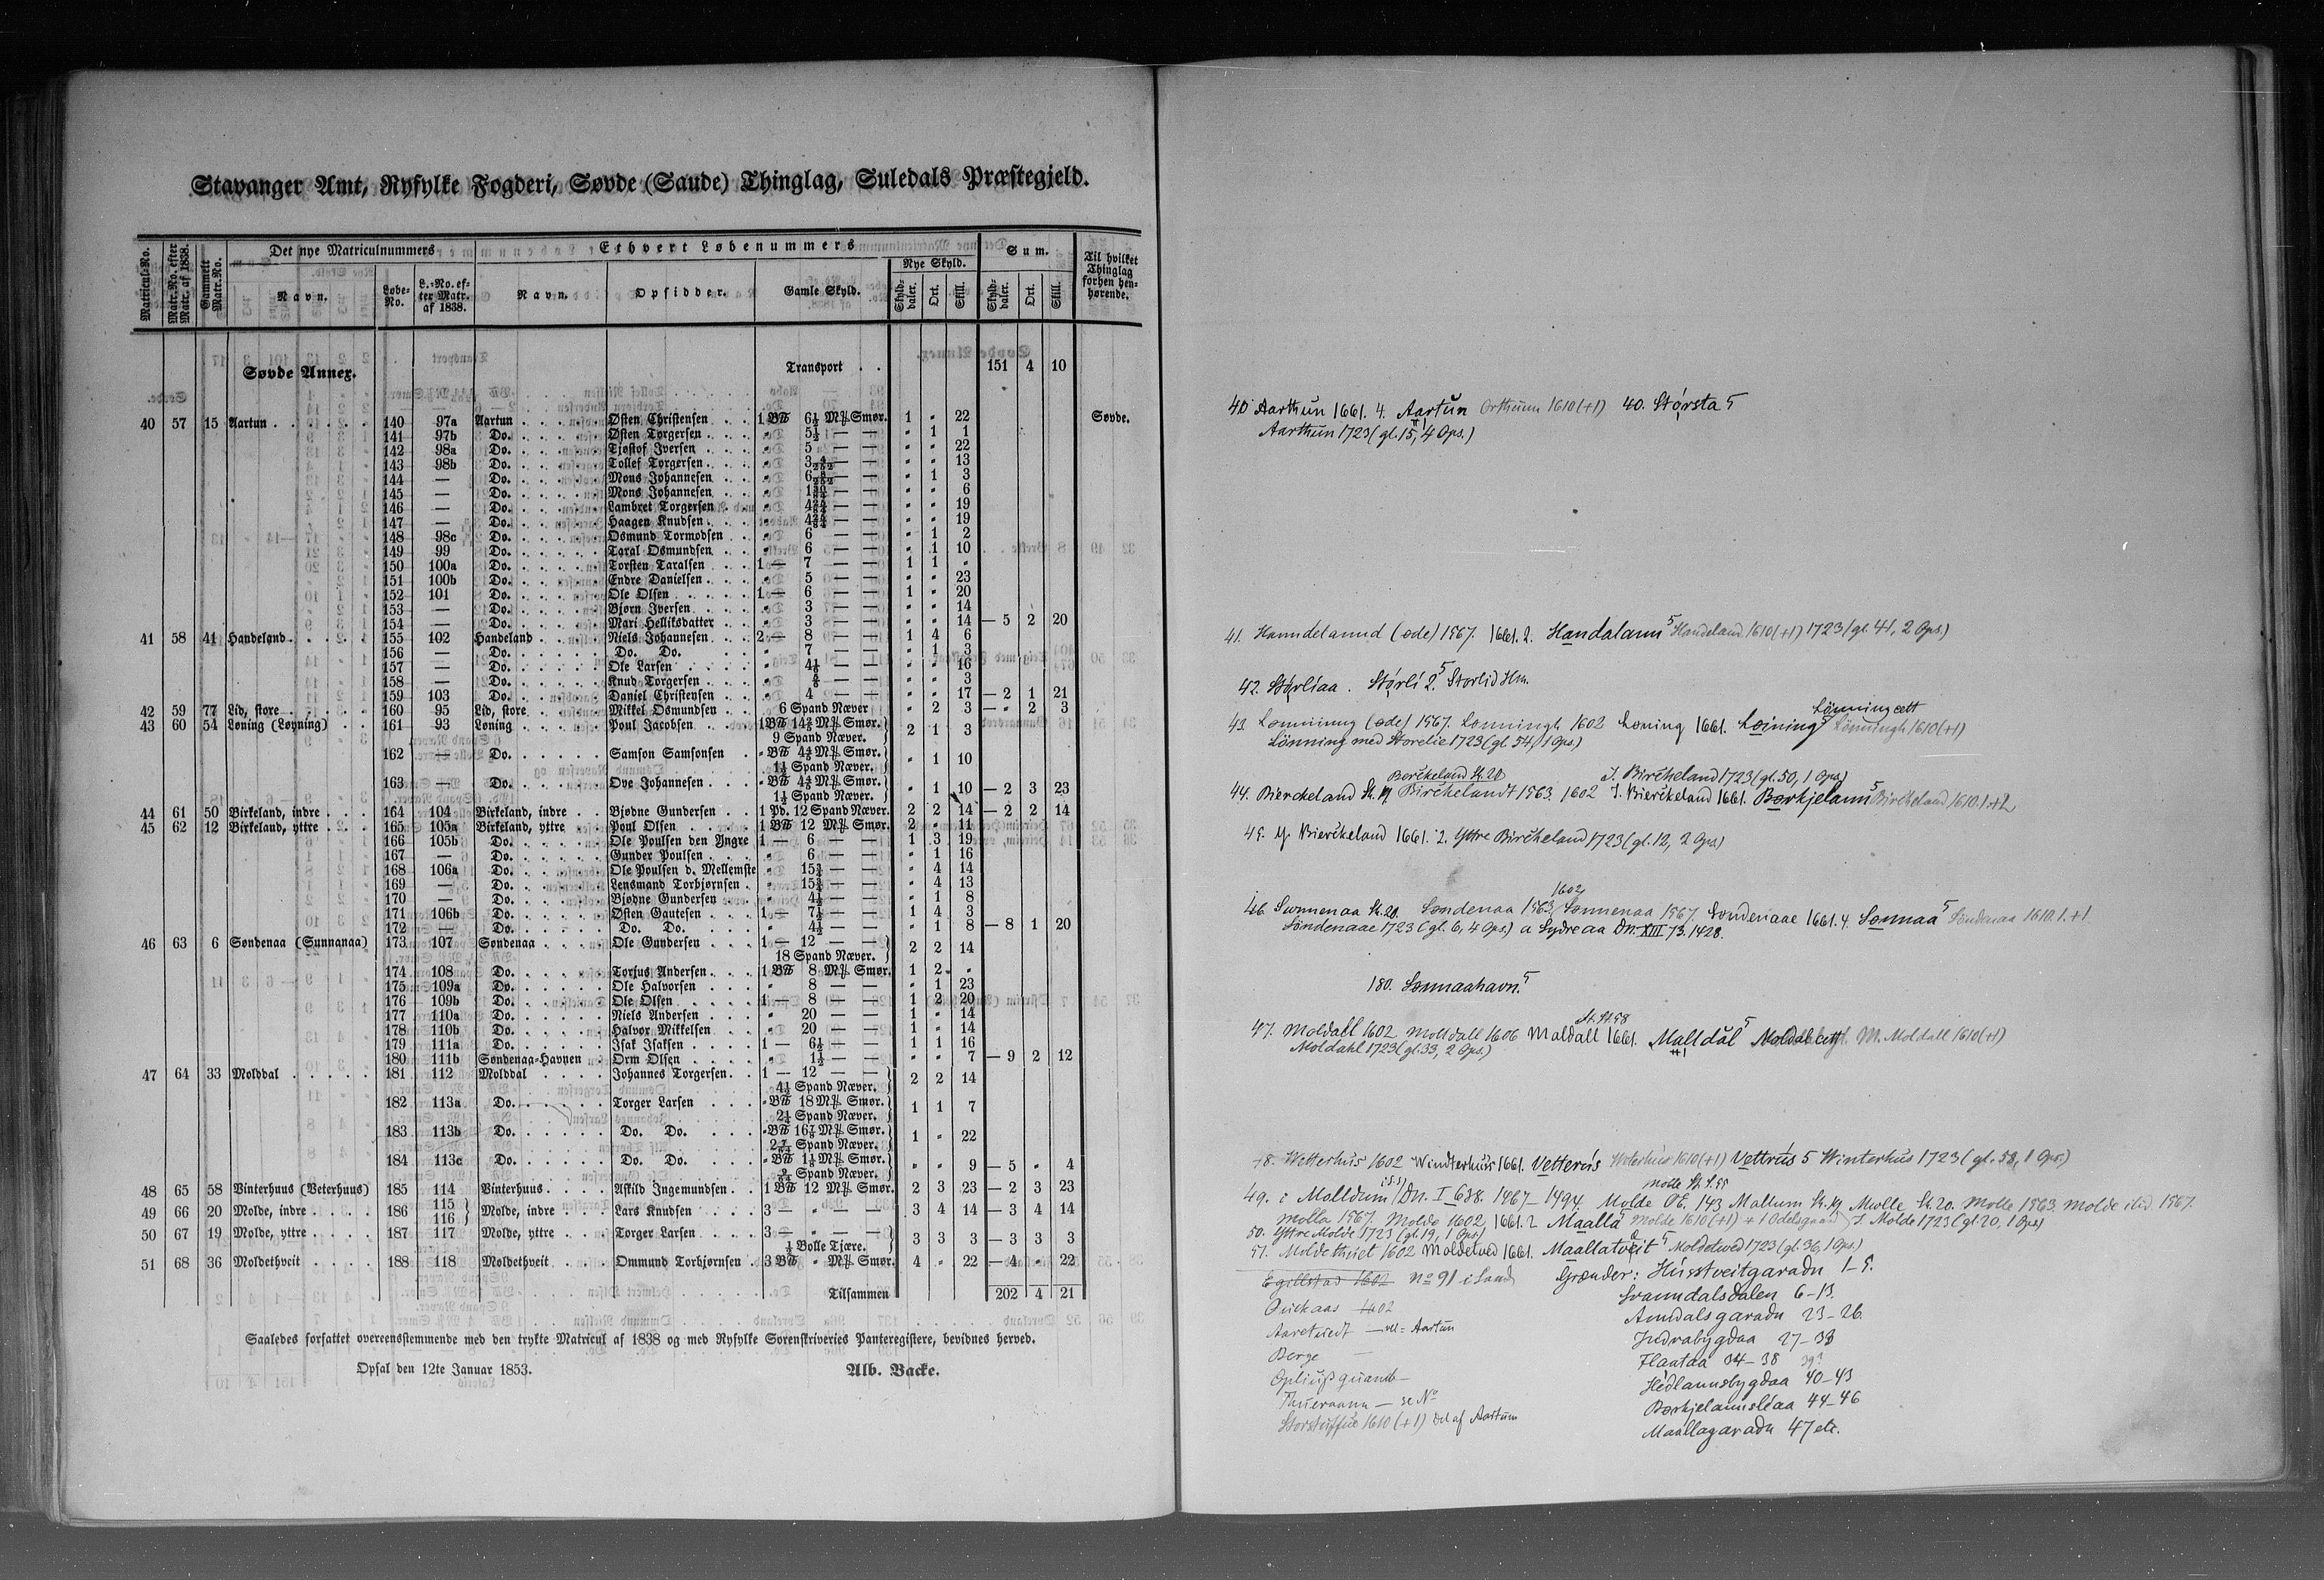 Stavanger Amt, Ryfylke Fogderi, Søvde (Saude) Thinglag, Suledals Præstegjeld.
Matricul-No.
Matr.No. efter Matr. af 1838.
Gammelt Matr.No.
Det nye Matriculnummers
Ethvert Løbenummers
Sum.
Til hvilket Thinglag forhen henhørende.
Navn.
Løbe-No.
L.-No. efter Matr. af 1838.
Navn.
Opsidder.
Gamle Skyld.
Nye Skyld.
Skylddaler. Ort. Skill.
Skylddaler. Ort. Skill.
Søvde Annex.
Transport . . 151 4 10
40 57 15 Aartun . . . . . . 140 97a Aartun . . . . Østen Christensen . . 1 BM 6½ M⅌ Smør. 1 " 22 Søvde.
141 97b Do. . . . . . Østen Torgersen . . . " 5½ — — " 1 1
142 98a Do. . . . . . Tjøstof Iversen . . . . " 5 — — " " 22
143 98b Do. . . . . . Tollef Torgersen . . . " — — " " 13
144 — Do. . . . . . Mons Johannesen . . . " — — " 1 3
145 — Do. . . . . . Mons Johannesen . . . " — — " " 6
146 — Do. . . . . . Lambret Torgersen . . " — — " " 19
147 — Do. . . . . . Haagen Knudsen . . . " — — " " 19
148 98c Do. . . . . . Osmund Tormodsen . . " 6 — — " 1 2
149 99 Do. . . . . . Taral Osmundsen . . . " 6 — — " 1 10
150 100a Do. . . . . . Torsten Taralsen . . . 1 — 7 — — 1 1 "
151 100b Do. . . . . . Endre Danielsen . . . " 5 — — " " 23
152 101 Do. . . . . . Ole Olsen . . . . . 1 — 6 — — 1 " 20
153 — Do. . . . . . Bjørn Iversen . . . . " 3 — — " " 14
154 — Do. . . . . . Mari Helliksdatter . . . " 3 — — " " 14 — 5 2 20
41 58 41 Handeland . . . . . 155 102 Handeland . . . . Niels Johannesen . . . 2 — 8 — — 1 4 6
156 — Do. . . . . . Do. Do. . . " 7 — — " 1 3
157 — Do. . . . . . Ole Larsen . . . . " 4⅛ — — " " 16
158 — Do. . . . . . Knud Torgersen . . . . " — — " " 3
159 103 Do. . . . . . Daniel Christensen . . . " 4 — — " " 17 — 2 1 21
42 59 77 Lid, store . . . . . 160 95 Lid, store . . . . Mikkel Osmundsen . . . 6 Spand Næver " 2 3 — " 2 3
43 60 54 Løning (Løyning) . . . 161 93 Løning . . . . . Poul Jacobsen . . . . 1 BM M⅌ Smør. 9 Spand Næver. 2 1 3
162 — Do. . . . . . Samson Samsonsen . . " BM M⅌ Smør. 1½ Spand Næver. " 1 10
163 — Do. . . . . . Ove Johannesen . . . " BM M⅌ Smør. 1½ Spand Næver. " 1 10 — 2 3 23
44 61 50 Birkeland, indre . . . 164 104 Birkeland, indre . . Bjødne Gundersen . . 1 Pd. 12 Spand Næver. 2 2 14 — 2 2 14
45 62 12 Birkeland, yttre . . . 165 105a Birkeland, yttre . . Poul Olsen . . . . . 1 BM 12 M⅌ Smør. 2 " 11
166 105b Do. . . . . . Ole Poulsen den Yngre 1 — 6 — — 1 3 19
167 — Do. . . . . . Gunder Poulsen . . . " 6 — — " 1 16
168 106a Do. . . . . . Ole Poulsen d. Mellemste " 15¾ — — " 4 14
169 — Do. . . . . . Lensmand Torbjørnsen . " 15¾ — — " 4 13
170 — Do. . . . . . Bjødne Gundersen . . . " 4½ — — " 1 8
171 106b Do. . . . . . Østen Gautesen . . . 1 — 7½ — — 1 4 3
172 — Do. . . . . . Do. Do. . . " 4½ — — " 1 8 — 8 1 20
46 63 6 Søndenaa (Sunnanaa) 173 107 Søndenaa . . . . Ole Gundersen . . . 1 — 12 — — 18 Spand Næver. 2 2 14
174 108 Do. . . . . . Torjus Andersen . . . 1 BM 8 M⅌ Smør. 1 2 "
175 109a Do. . . . . . Ole Halvorsen . . . " 8 — — " 1 23
176 109b Do. . . . . . Ole Olsen . . . . . 1 — 8 — — 1 2 20
177 110a Do. . . . . . Niels Andersen . . . " 20 — — 1 " 14
178 110b Do. . . . . . Halvor Mikkelsen . . " 20 — — 1 " 14
179 111a Do. . . . . . Isak Isaksen . . . . 1 — 6½ — — 1 1 16
180 111b Søndenaa-Havnen . Orm Olsen . . . . " 1½ — — " " 7 — 9 2 12
47 64 33 Molddal . . . . . 181 112 Molddal . . . . Johannes Torgersen . . 1 — 12 — — 4½ Spand Næver. 2 2 14
182 113a Do. . . . . . Torger Larsen . . . " BM 18 M⅌ Smør. 2¼ Spand Næver. 1 1 7
183 113b Do. . . . . . Do. Do. . . . " BM M⅌ Smør. Spand Næver. 1 " 22
184 113c Do. . . . . . Do. Do. . . . " BM M⅌ Smør. Spand Næver. " " 9 — 5 " 4
48 65 58 Vinterhuus (Veterhuus) 185 114 Vinterhuus . . . . Askild Ingemundsen . . 1 BM 12 M⅌ Smør. 2 3 23 — 2 3 23
49 66 20 Molde, indre . . . . 186 115 116 Molde, indre . . . Lars Knudsen . . . . 3 — " — — 3 4 14 — 3 4 14
50 67 19 Molde, yttre . . . . 187 117 Molde, yttre . . . Torger Larsen . . . . 3 — " — — ½ Bolle Tjære. 3 3 3 — 3 3 3
51 68 36 Moldethveit . . . . 188 118 Moldethveit . . . Ommund Torbjørnsen . 3 BM " M⅌ Smør. 4 " 22 — 4 " 22
Tilsammen 202 4 21
Saaledes forfattet overeensstemmende med den trykte Matricul af 1838 og med Ryfylke Sorenskriveries Panteregistere, bevidnes herved.
Opsal den 12te Januar 1853. Alb. Backe.
40 Aarthun 1661. 4. Aartun Orthuum 1610 (+1) 40. Størsta 5
Aarthun 1723 (gl. 15, 4 Ops.)
41. Hanndelannd (øde) 1567. 1661. 2. Handalann 5 Handeland 1610 (+1) 1723 (gl. 41, 2 Ops.)
42. Størliaa. Størli 2. 5 Storlid Hm.
Lönning cett
43. Lonninng (øde) 1567. Lonningh 1602 Loning 1661. Løining 5 Lönningh 1610 (+1)
Lönning med Storelie 1723 (gl. 54, 1 Ops.)
Berckeland St. 20 I. Birckeland 1723 (gl. 50, 1 Ops.)
44. Bierckeland St. Birckelandt 1563. 1602 I. Bierckeland 1661. Børkjelann 5 Birckeland 1610. 1+2
45. Y Bierckeland 1661. 2. Yttre Birckeland 1723 (gl. 12, 2 Ops.)
1602
46. Sunnenaa St. 20. Søndenaa 1563 Sonnenaa 1567. Sondenaae 1661. 4. Sønnaa 5 Søndenaa 1610. 1.+1.
Søndenaae 1723 (gl. 6, 4 Ops.) a Sydre aa DN. XIII 73. 1428.
180. Sønnaahavn. 5
St. St. 58
47. Moldall 1602 Molldall 1606 Maldall 1661. Malldal 5 Moldal cett. M. Moldall 1610 (+1)
Moldahl 1723 (gl. 33, 2 Ops.)
48. Wetterhus 1602 Windterhuus 1661. Vetterus Veterhus 1610 (+1) Vettrus 5 Winterhus 1723 (gl. 58, 1 Ops.)
49. i Malldum DN. I 638. 1467–1494. Molde OE. 143 Mallum St. Mølle St. 20. Molle 1563. Molde ibid. 1567.
Molla 1567. Molde 1602, 1661. 2 Maalla Molde 1610 (+1) + 1 Ødelsgaard I. Molde 1723 (gl. 20, 1 Ops)
50. Yttre Molde 1723 (gl. 19, 1 Ops)
51. Moldethuet 1602 Moldetved 1661. Maallatveit 5 Moldetved 1723 (gl. 36, 1 Ops.)
Egillstad 1602 No 91 i Sand
Quekaas 1602
Aaretuedt — vel = Aartun
Berge —
— se No
1610 (+1) Del af Aartun
Grænder: Husstveitgaradn 1–5.
Svanndalsdalen 6–13.
Amdalsgaradn 23–26.
Indrabygdaa 27–33
Flaataa 34–38 39?
Hedlannsbygdaa 40–43
Børkjelannsliaa 44–46
Maallagaradn 47 etc.